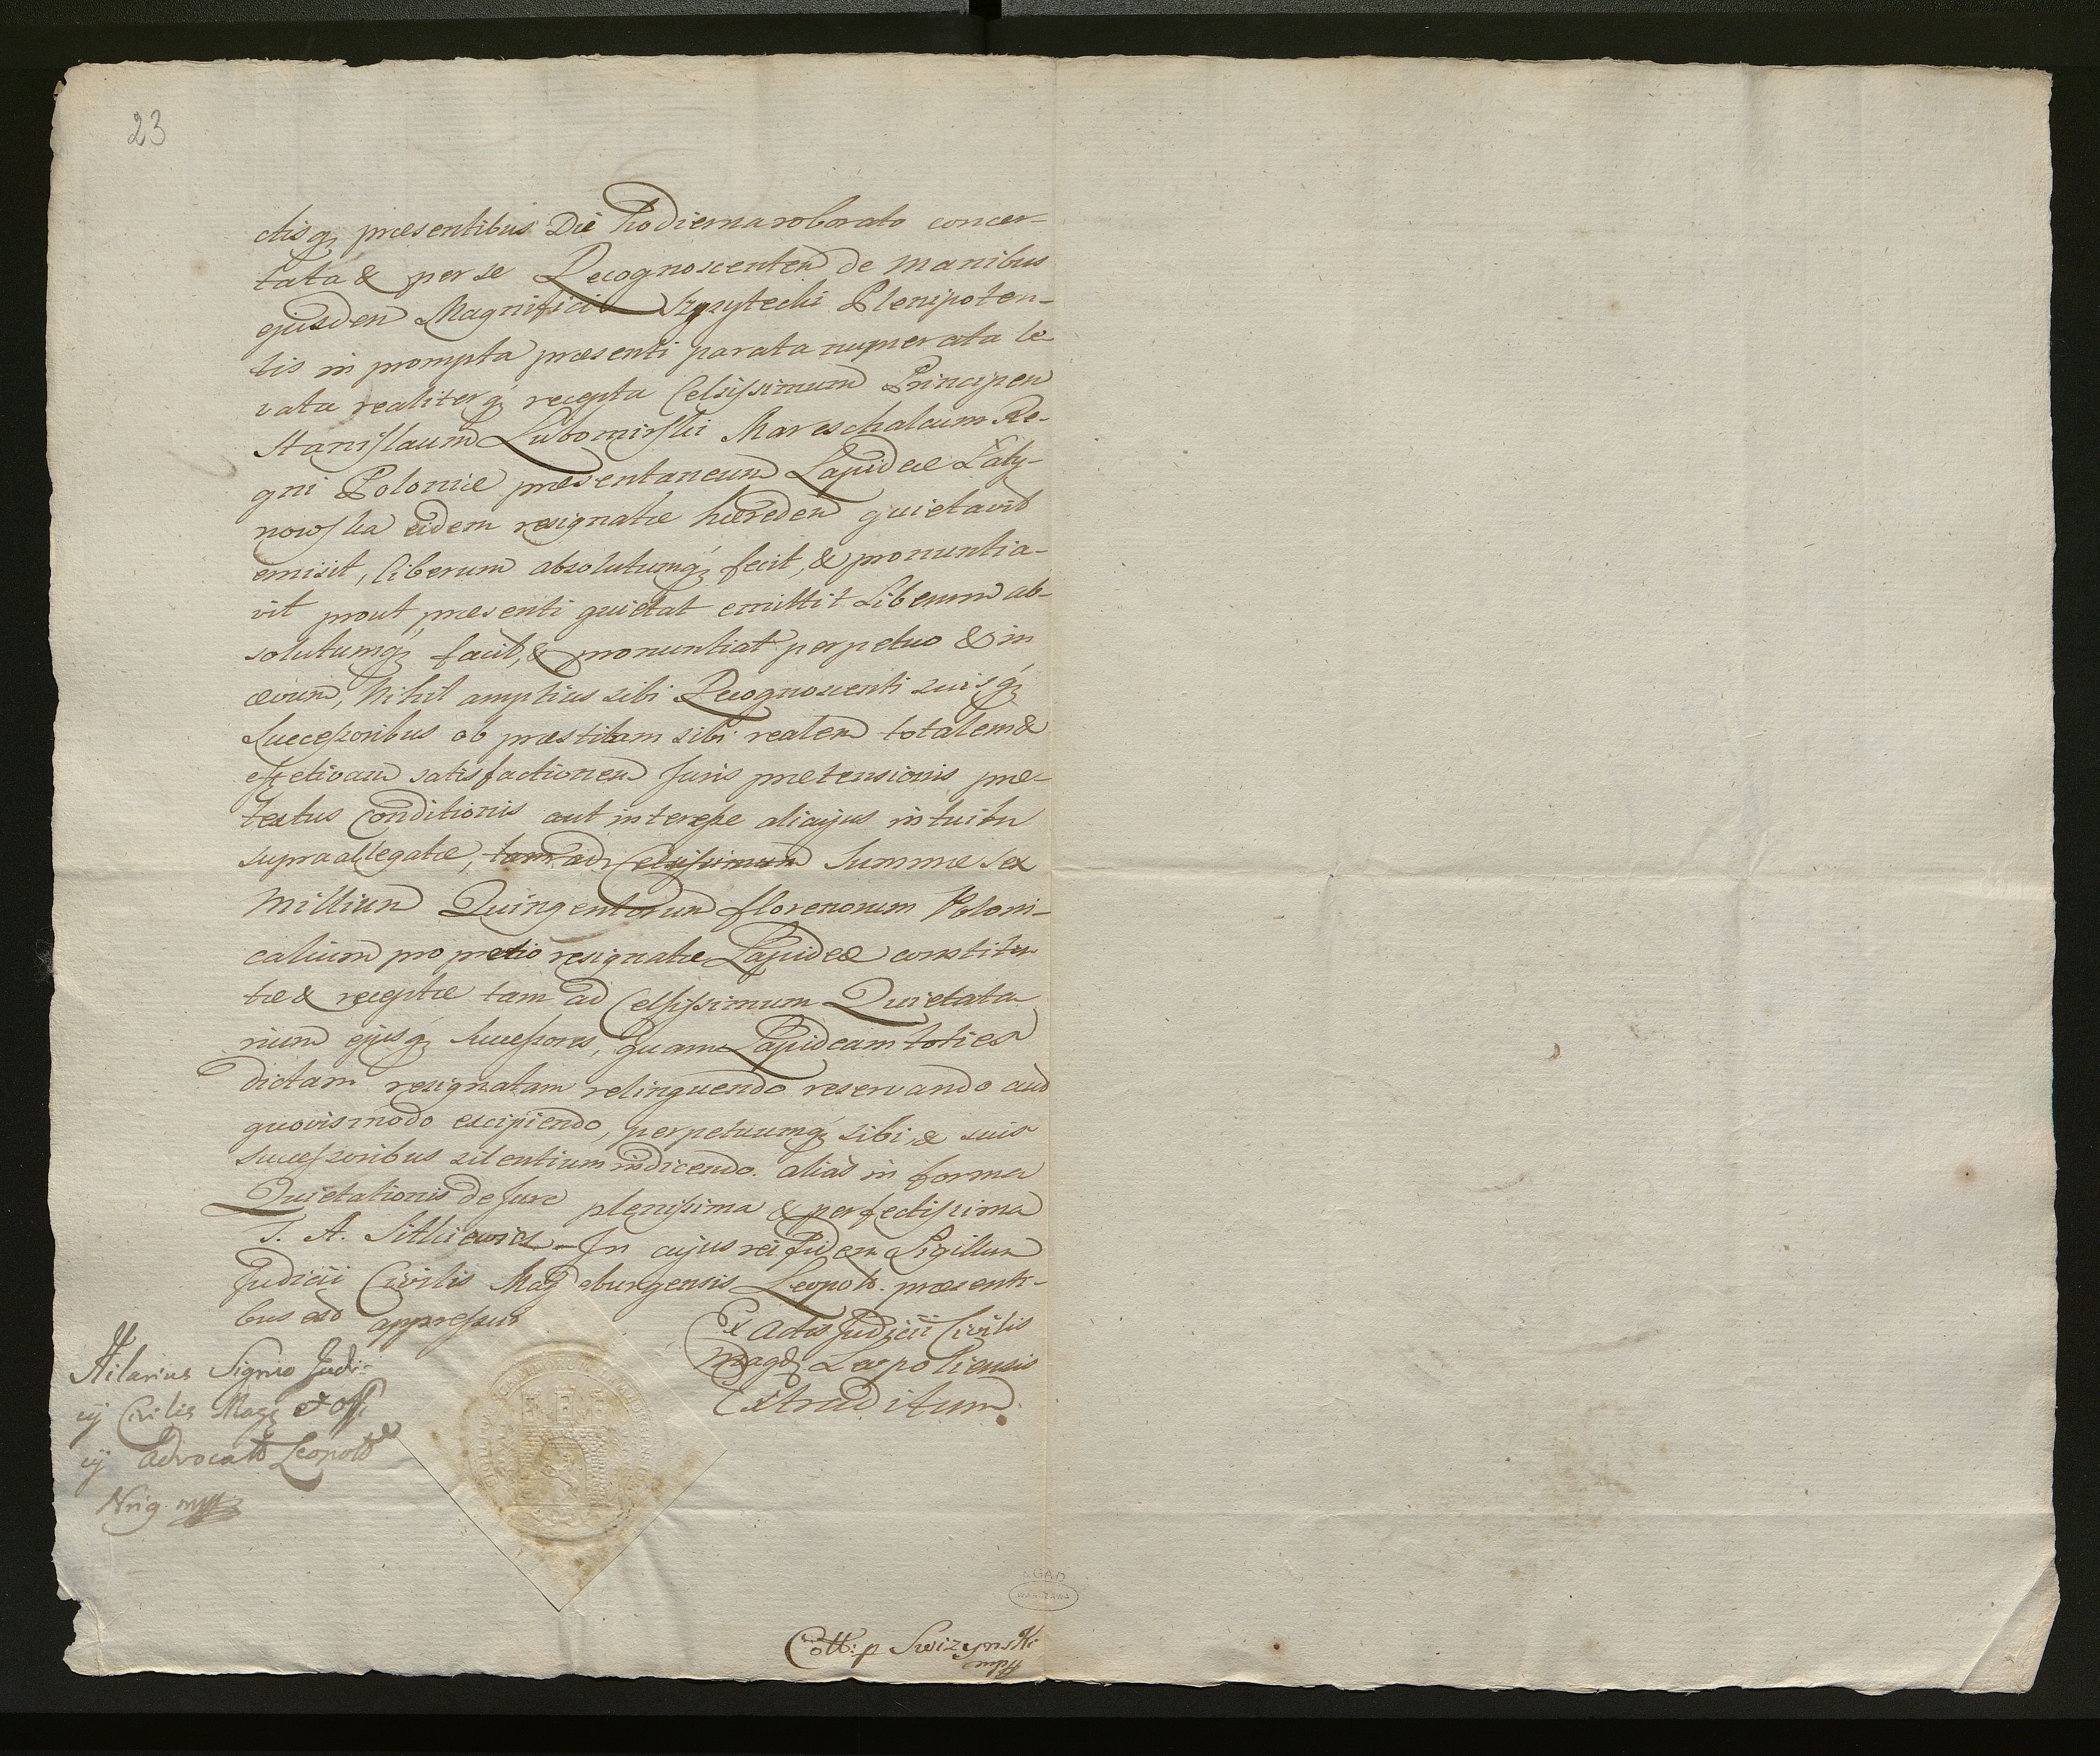 23
ctisq; præsentibus Die hodierna roborato concer-
tata & per se Recognoscentem de manibus
ejusdem Magnifici Szpytecki Plenipoten-
tis in prompta præsenti parata numerata le-
vata realiterq; recepta Celsissimum Principem
Stanislaum Lubomirski Mareschalcum Re-
gni Poloniæ præsentaneum Lapideæ Laty-
nowska eidem resignatæ hæredem quietavit
emisit, liberum absolutumq; fecit, & pronuntia-
vit prout præsenti quietat emittit Liberum ab-
solutumq; facit, & pronuntiat perpetuo & in
ævum, Nihil amplius sibi Recognoscenti suisq;
Successoribus ob præstitam sibi realem totalem &
effectivam satisfactionem Juris prætensionis præ-
textus Conditionis aut interesse alicujus intuitu
supraallegatæ, tam ad Celsissimum Summæ Sex
Millium Quingentorum florenorum Poloni-
calium pro pretio resignatæ Lapideæ constitu
tæ & receptæ tam ad Celsissimum Quietata
rium ejusq; Successores, quam Lapideam toties
dictam resignatam relinquendo reservando aut
quovismodo excipiendo, perpetuumq; sibi & suis
Successoribus silentium indicendo. alias in forma
Quietationis de Jure plenissima & perfectissima
T. A. Sitkiewicz – In cujus rei Fidem Sigillum
Judicii Civilis Magdeburgensis Leopol. præsenti-
bus est appressum
Ex Actis Judicii Civilis
Magd; Leopoliensis
Extraditum.
Hilarius Signio Judi-
cij Civilis Mag; et Offi
cij Advocatl Leopol
Nrig mpp
AGAD
WARSZAWA
Coll: p Swizynski
mpp